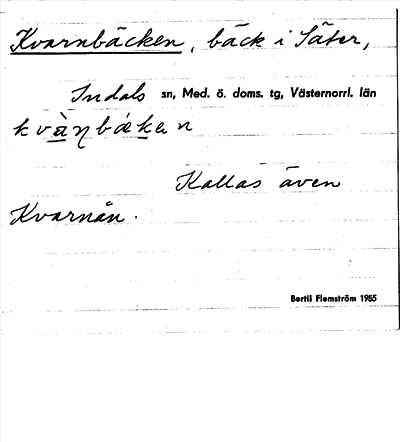 Kvarnbäcken, bäck i Säter,
Indals sn, Med. ö. doms. tg, Västernorrl. län
Kallas även
Kvarnån.
Bertil Flemström 1965